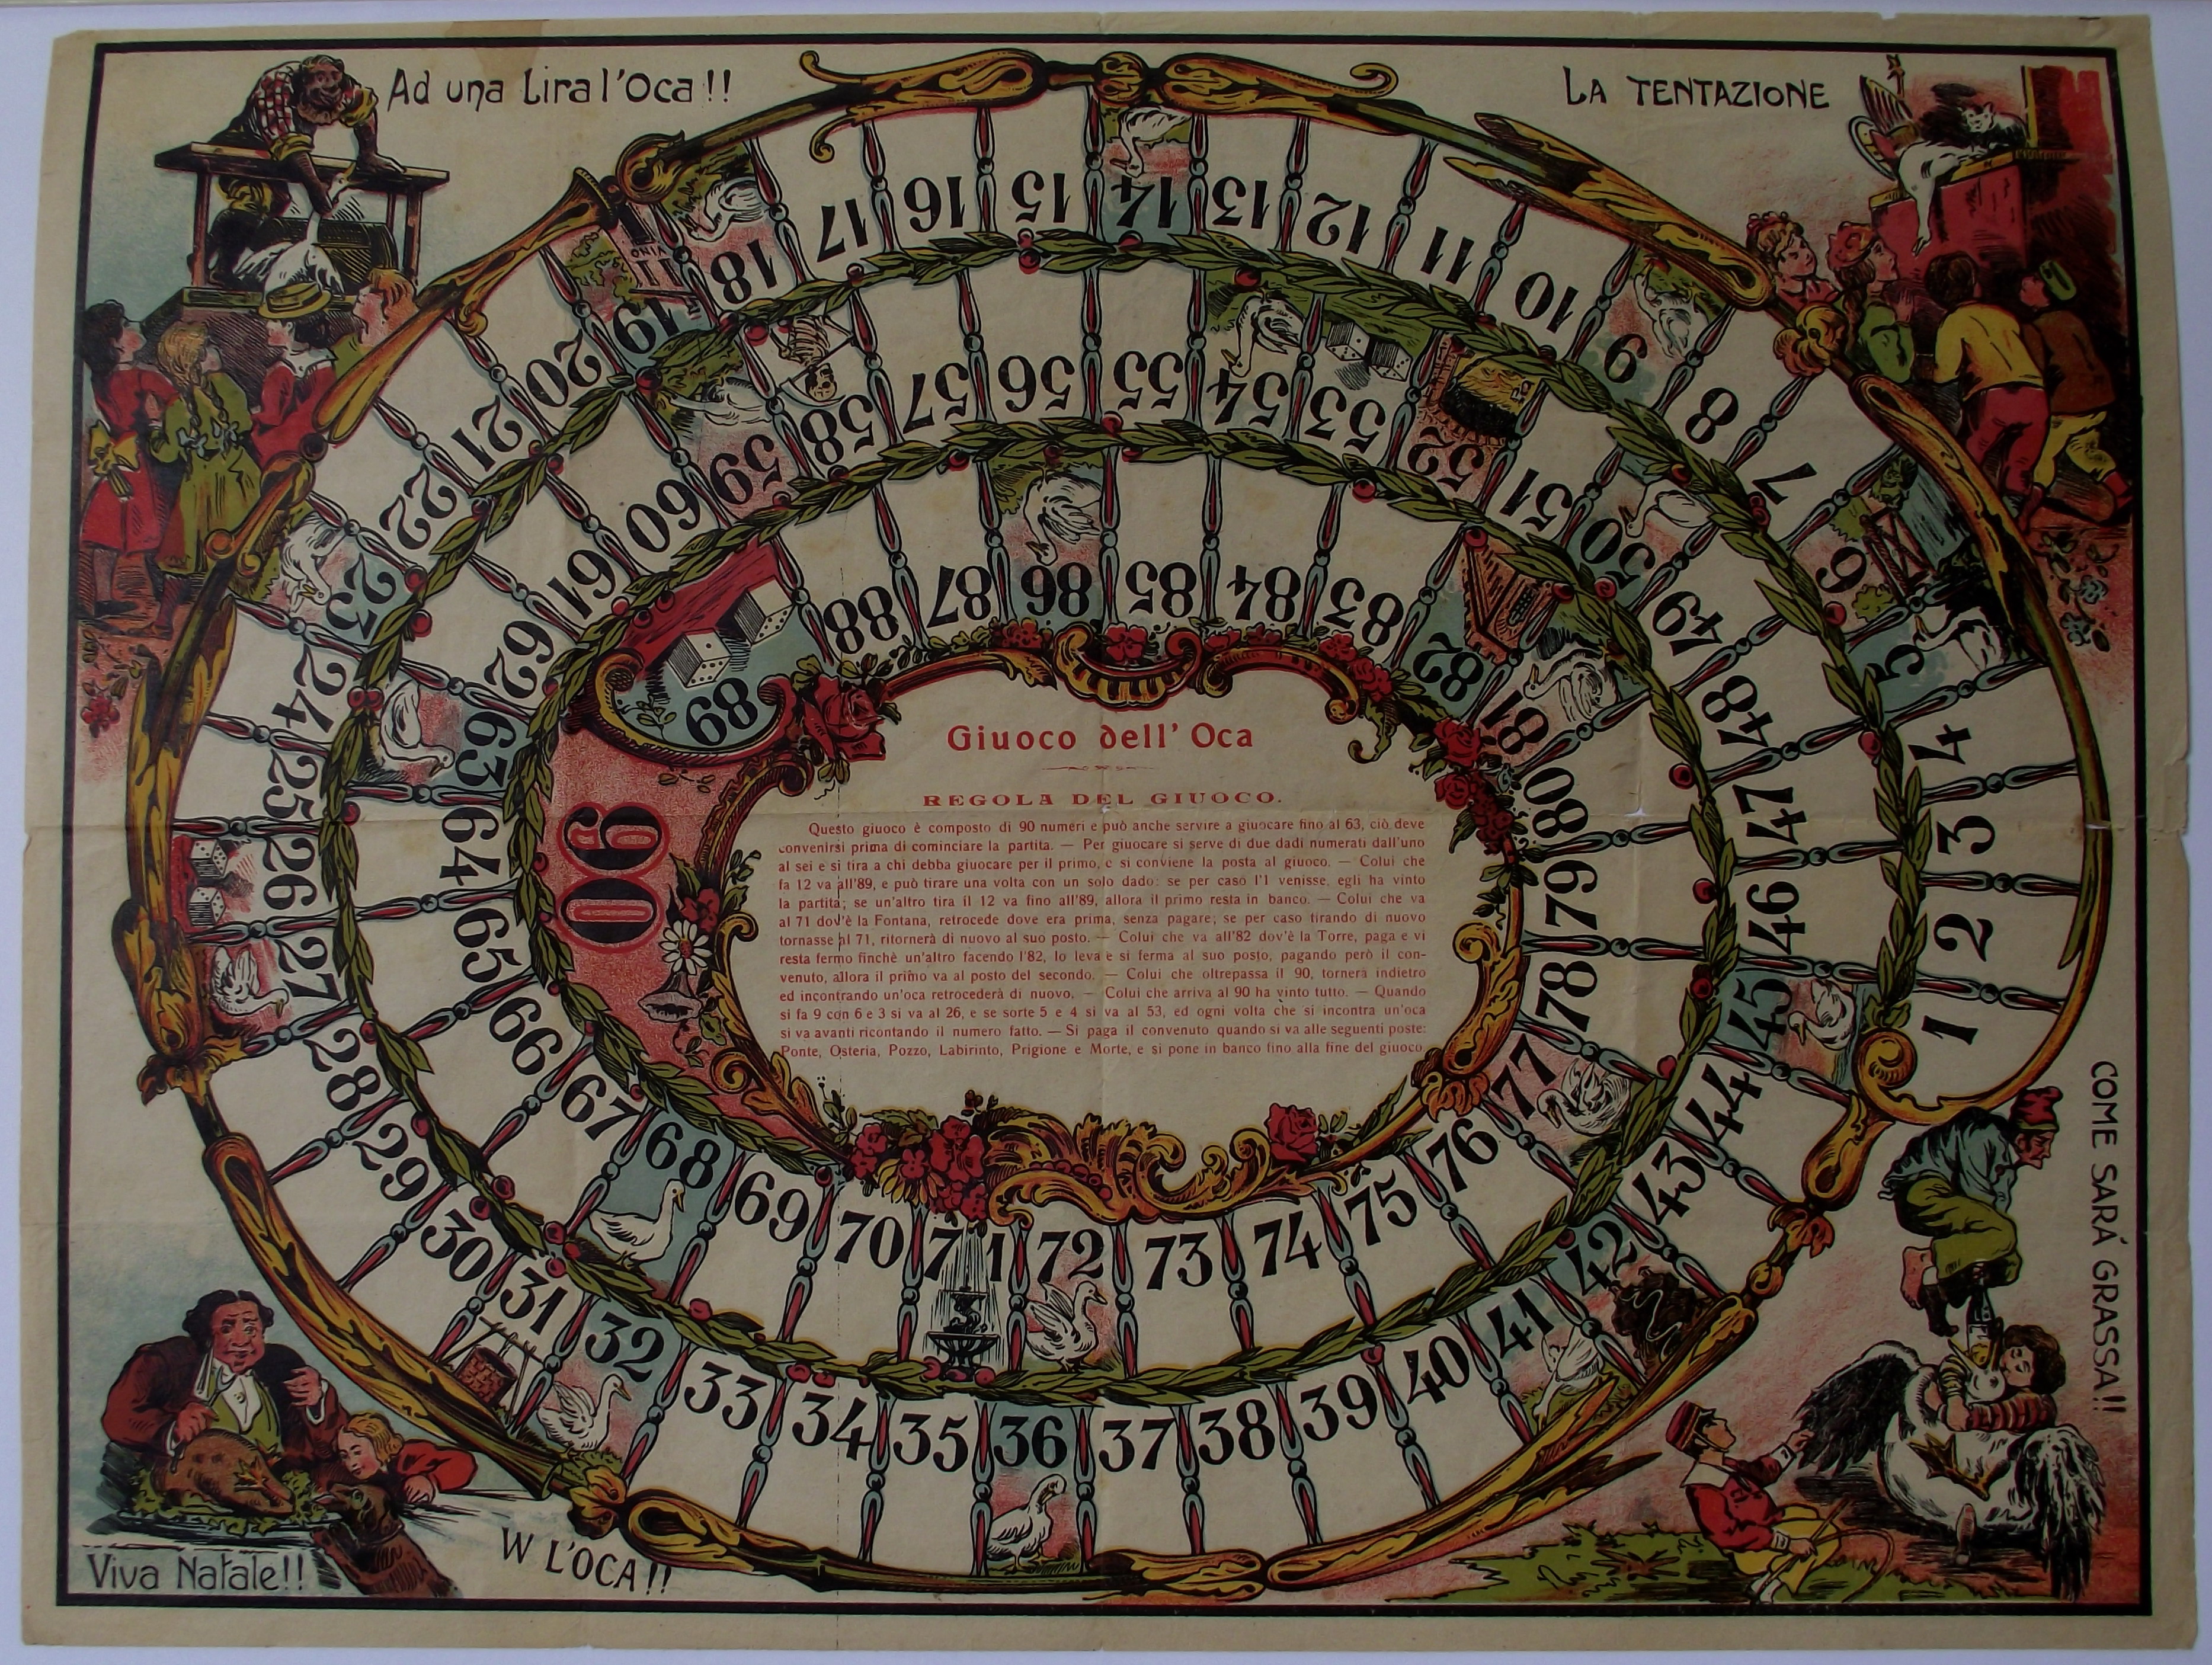 Ad una Lira l'Oca!!
LA TENTAZIONE
COME SARÁ GRASSA!!
Viva Natale!!
W L'OCA!!
Giuoco dell' Oca
REGOLA DEL GIUOCO.
Questo giuoco è composto di 90 numeri e può anche servire a giuocare fino al 63, ciò deve
convenirsi prima di cominciare la partita. — Per giuocare si serve di due dadi numerati dall'uno
al sei e si tira a chi debba giuocare per il primo, e si conviene la posta al giuoco. — Colui che
fa 12 va all'89, e può tirare una volta con un solo dado: se per caso l'1 venisse, egli ha vinto
la partita; se un'altro tira il 12 va fino all'89, allora il primo resta in banco. — Colui che va
al 71 dov'è la Fontana, retrocede dove era prima, senza pagare; se per caso tirando di nuovo
tornasse al 71, ritornerà di nuovo al suo posto. — Colui che va all'82 dov'è la Torre, paga e vi
resta fermo finchè un'altro facendo l'82, lo leva e si ferma al suo posto, pagando però il con-
venuto, allora il primo va al posto del secondo. — Colui che oltrepassa il 90, tornerà indietro
ed incontrando un'oca retrocederà di nuovo. — Colui che arriva al 90 ha vinto tutto. — Quando
si fa 9 con 6 e 3 si va al 26, e se sorte 5 e 4 si va al 53, ed ogni volta che si incontra un'oca
si va avanti ricontando il numero fatto. — Si paga il convenuto quando si va alle seguenti poste:
Ponte, Osteria, Pozzo, Labirinto, Prigione e Morte, e si pone in banco fino alla fine del giuoco
1
2
3
4
5
6
7
8
9
10
11
12
13
14
15
16
17
18
19
VINO
20
21
22
23
24
25
26
27
28
29
30
31
32
33
34
35
36
37
38
39
40
41
42
43
44
45
46
47
48
49
50
51
52
53
54
55
56
57
58
59
60
61
62
63
64
65
66
67
68
69
70
71
72
73
74
75
76
77
78
79
80
81
82
83
84
85
86
87
88
89
90